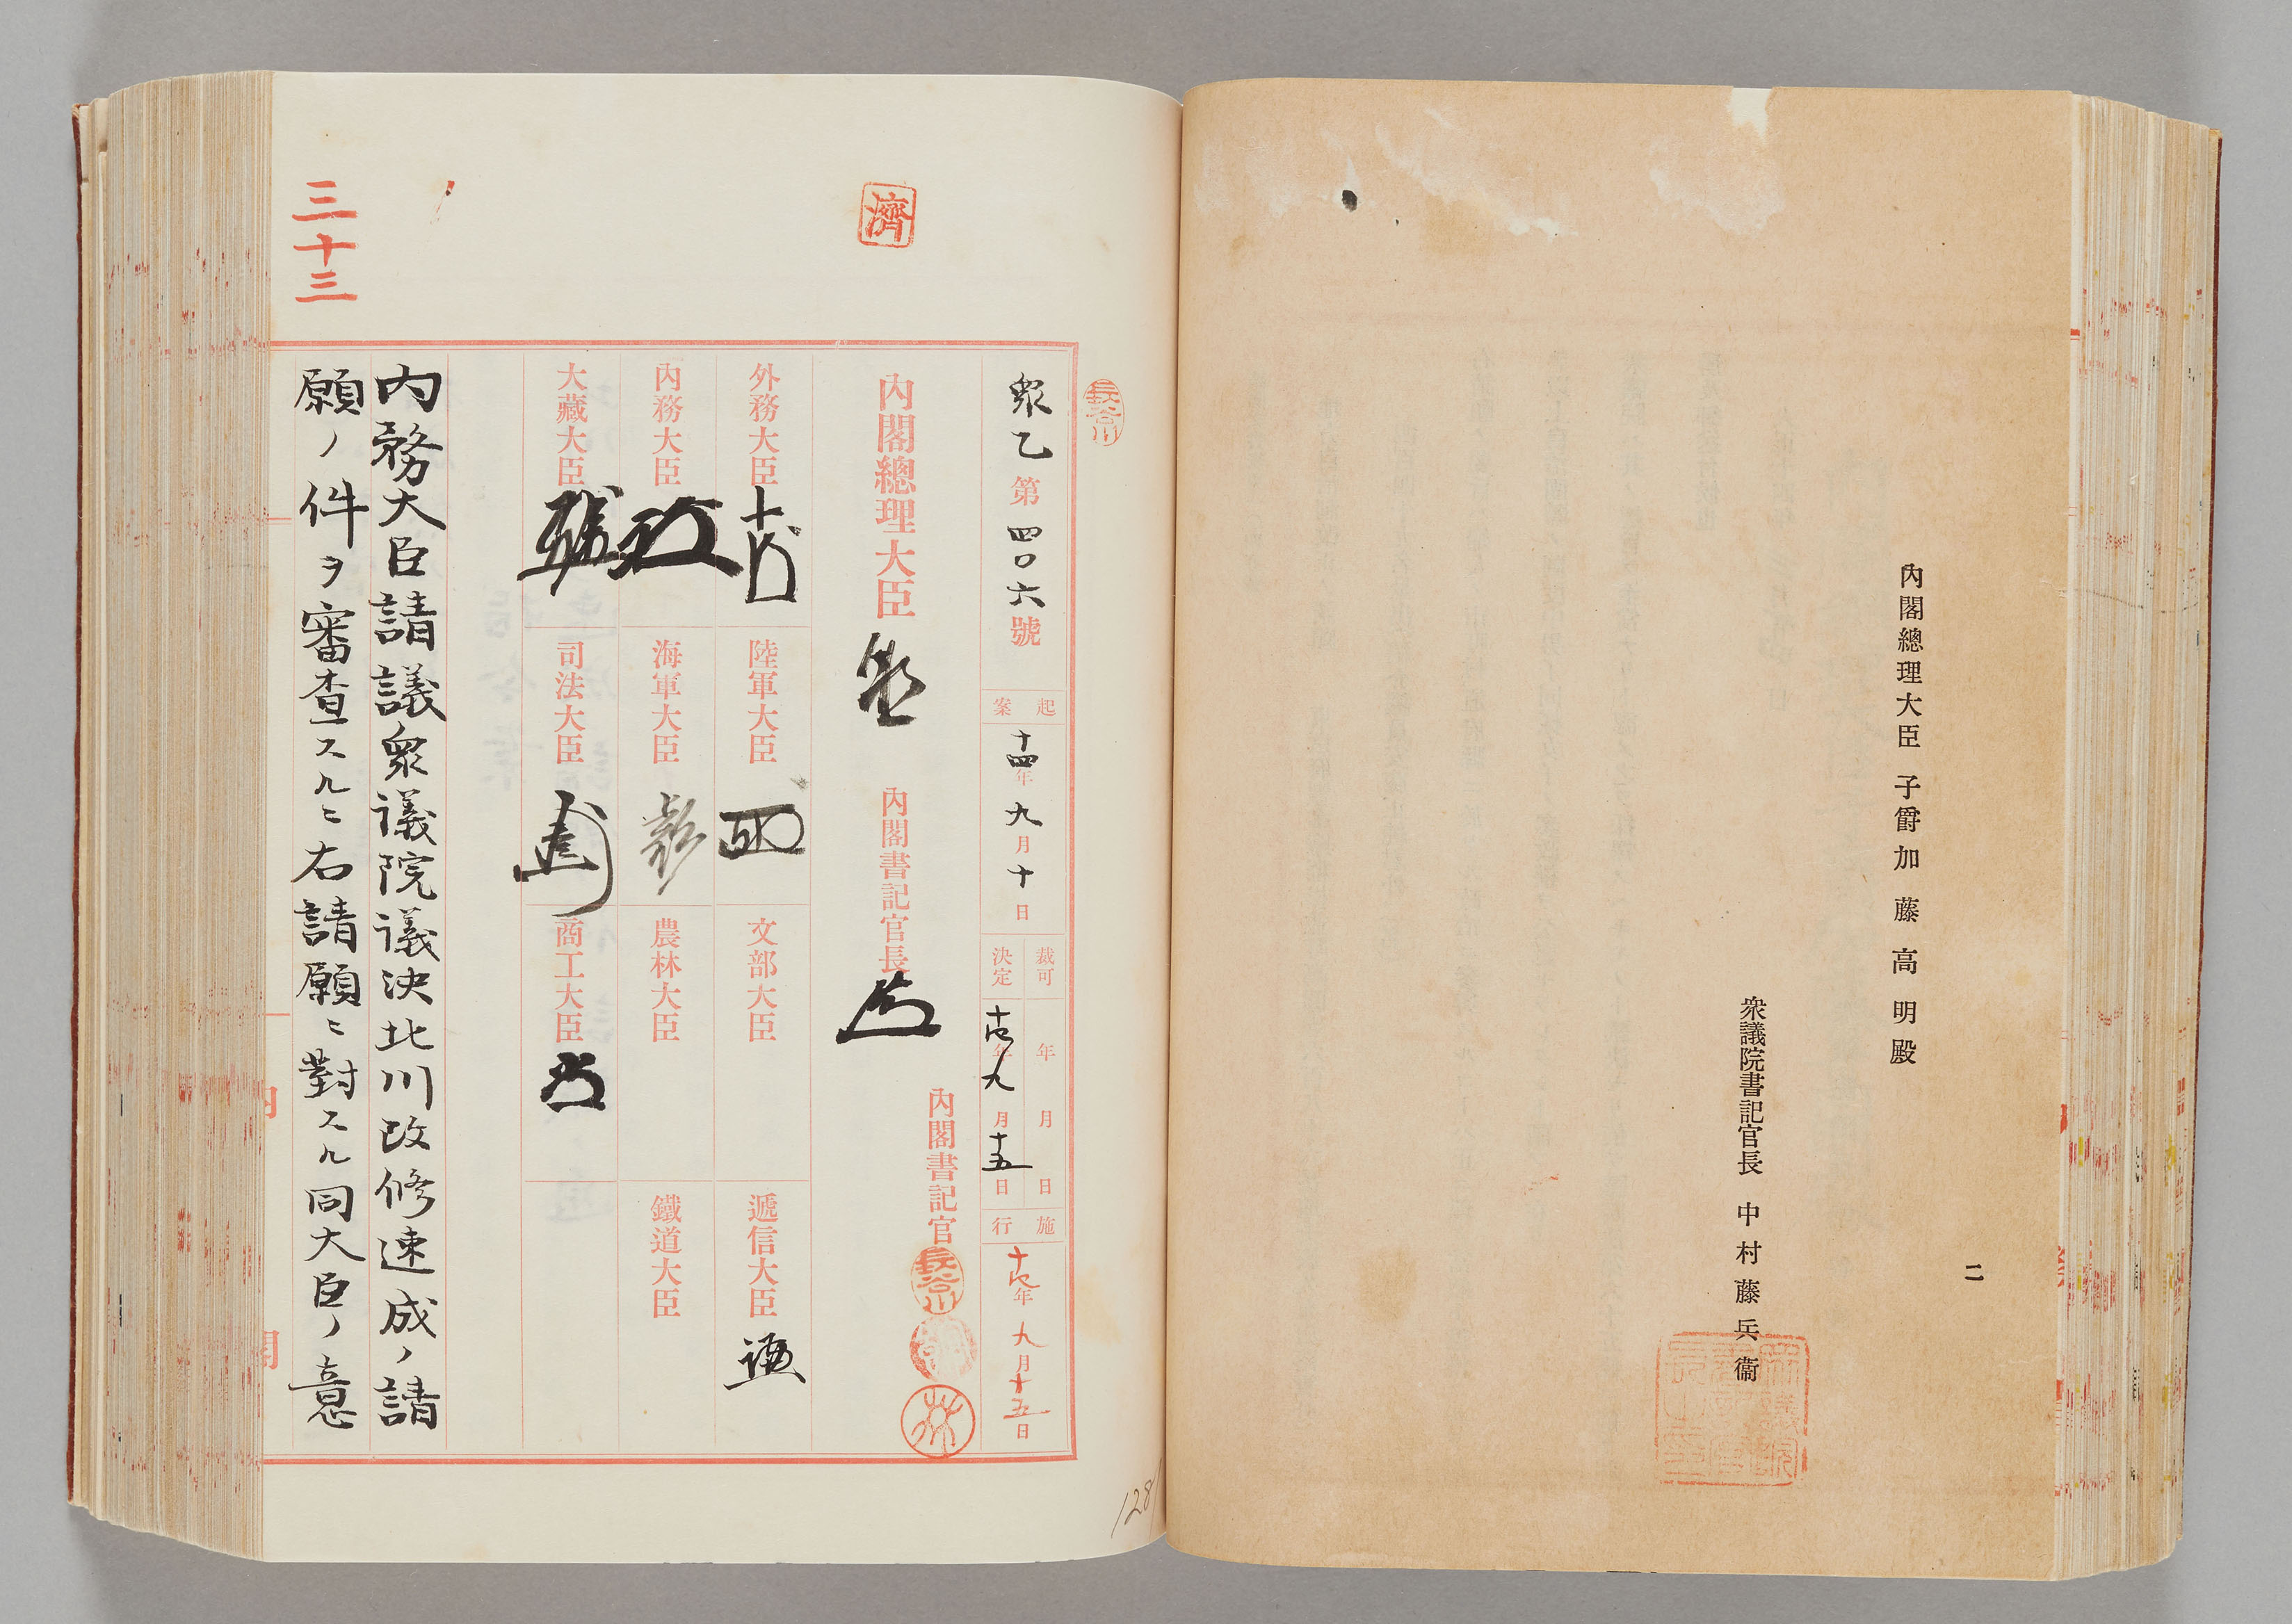 內閣總理大臣 子爵 加藤高明殿
衆議院書記官長 中村藤兵衞
二
長谷川
衆乙第四〇六號
起案
十四年九月十日
裁可 年 月 日
決定 十四年九月十五日
施行
十四年九月十五日
濟
內閣總理大臣
內閣書記官長
內閣書記官
長谷川
外務大臣
陸軍大臣
文部大臣
遞信大臣
內務大臣
海軍大臣
農林大臣
鐵道大臣
大藏大臣
司法大臣
商工大臣
内務大臣請議衆議院議決北川改修速成ノ請
願ノ件ヲ審査スルニ右請願ニ對スル同大臣ノ意
三十三
128